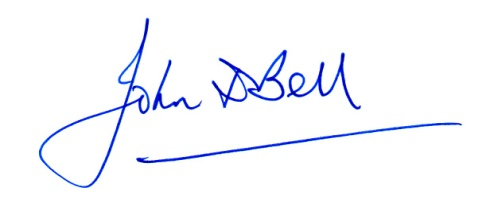 John D Bell